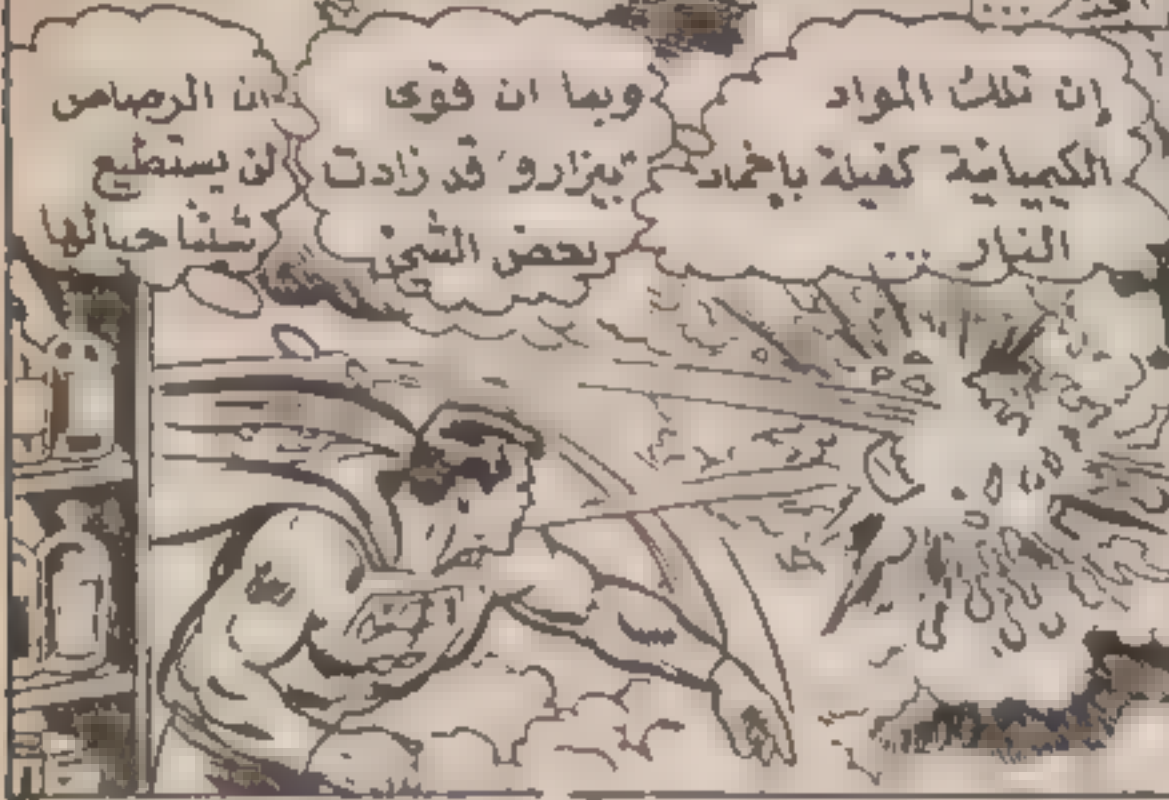 ان تلك المواد
الكيميائية كفيلة باخماد
النار ...
وبما ان قوى
"بيزارو" قد زادت
بعض الشيء
ان الرصاص
لن يستطيع
شيئا حيالها